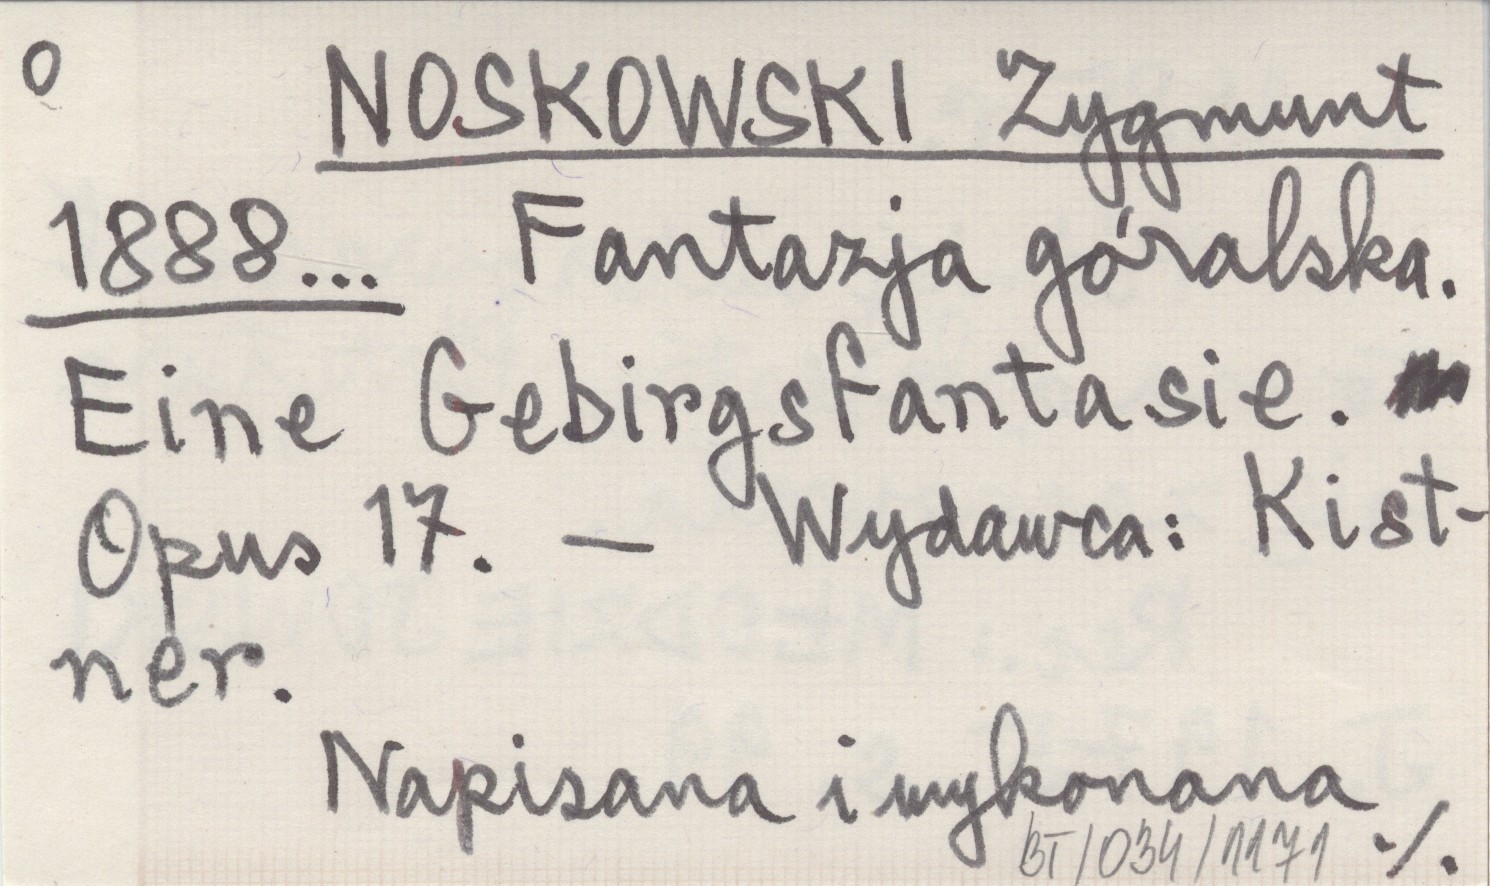 O NOSKOWSKI Zygmunt
1888... Fantazja góralska.
Eine Gebirgsfantasie.
Opus 17. — Wydawca: Kist-
ner.
Napisana i wykonana ./.
BT/034/1171